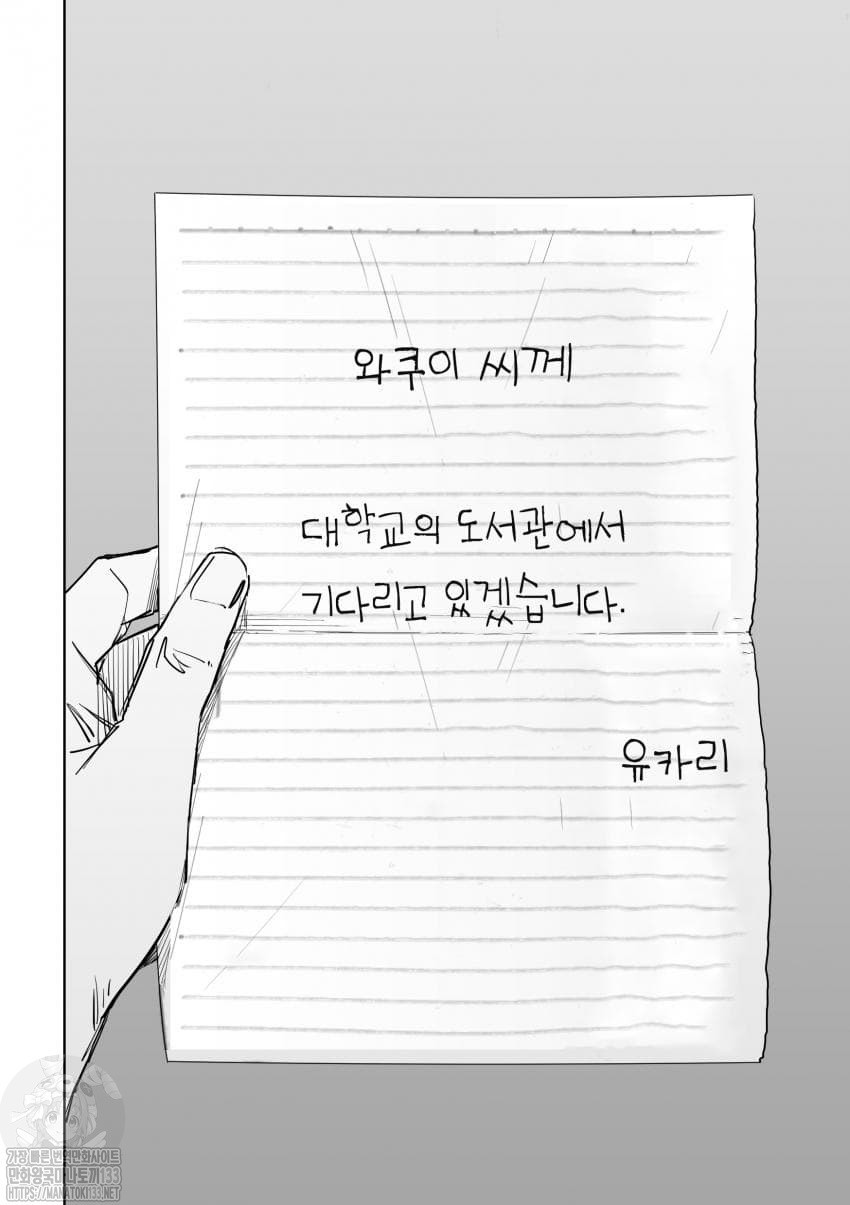 와쿠이 씨께
대학교의 도서관에서
기다리고 있겠습니다.
유카리
가장 빠른 번역만화사이트
만화왕국마나토끼133
HTTPS://MANATOKI133.NET